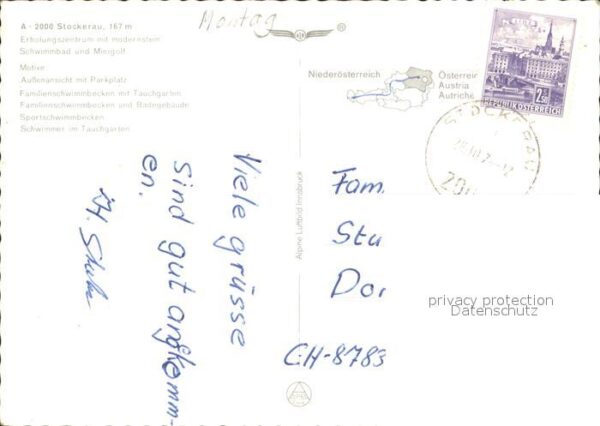 A - 2000 Stockerau, 167 m
Erholungszentrum mit modernstem
Schwimmbad und Minigolf
Motive:
Außenansicht mit Parkplatz
Familienschwimmbecken mit Tauchgarten
Familienschwimmbecken und Badegebäude
Sportschwimmbecken
Schwimmer im Tauchgarten
Montag
®
Niederösterreich
Österreich
Austria
Autriche
2.50
REPUBLIK ÖSTERREICH
STOCKERAU
Viele grüsse
sind gut angkomm-
en.
Alpine Luftbild Innsbruck
Fam.
Stu
Dor
CH-8783
privacy protection
Datenschutz